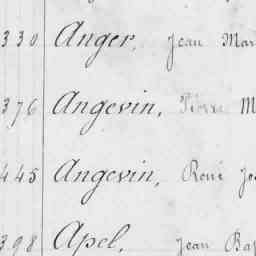 330 Anger, Jean Mar
376 Angevin, Pierre M
445 Angevin, René Je
398 Apel, Jean Bap